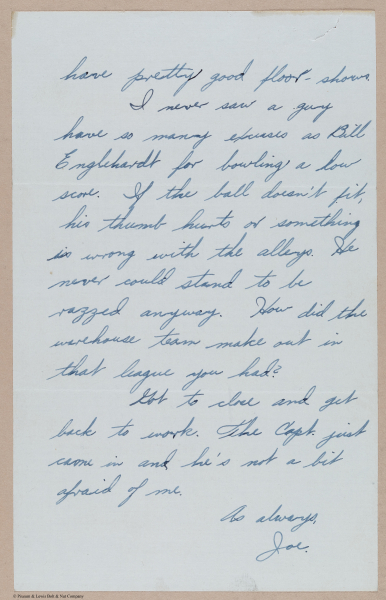 have pretty good floor-shows.
I never saw a guy
have so many excuses as Bill
Englehardt for bowling a low
score. If the ball doesn't fit,
his thumb hurts or something
is wrong with the alleys. He
never could stand to be
razzed anyway. How did the
warehouse team make out in
that league you had?
Got to close and get
back to work. The Capt just
came in and he's not a bit
afraid of me.
As always,
Joe.